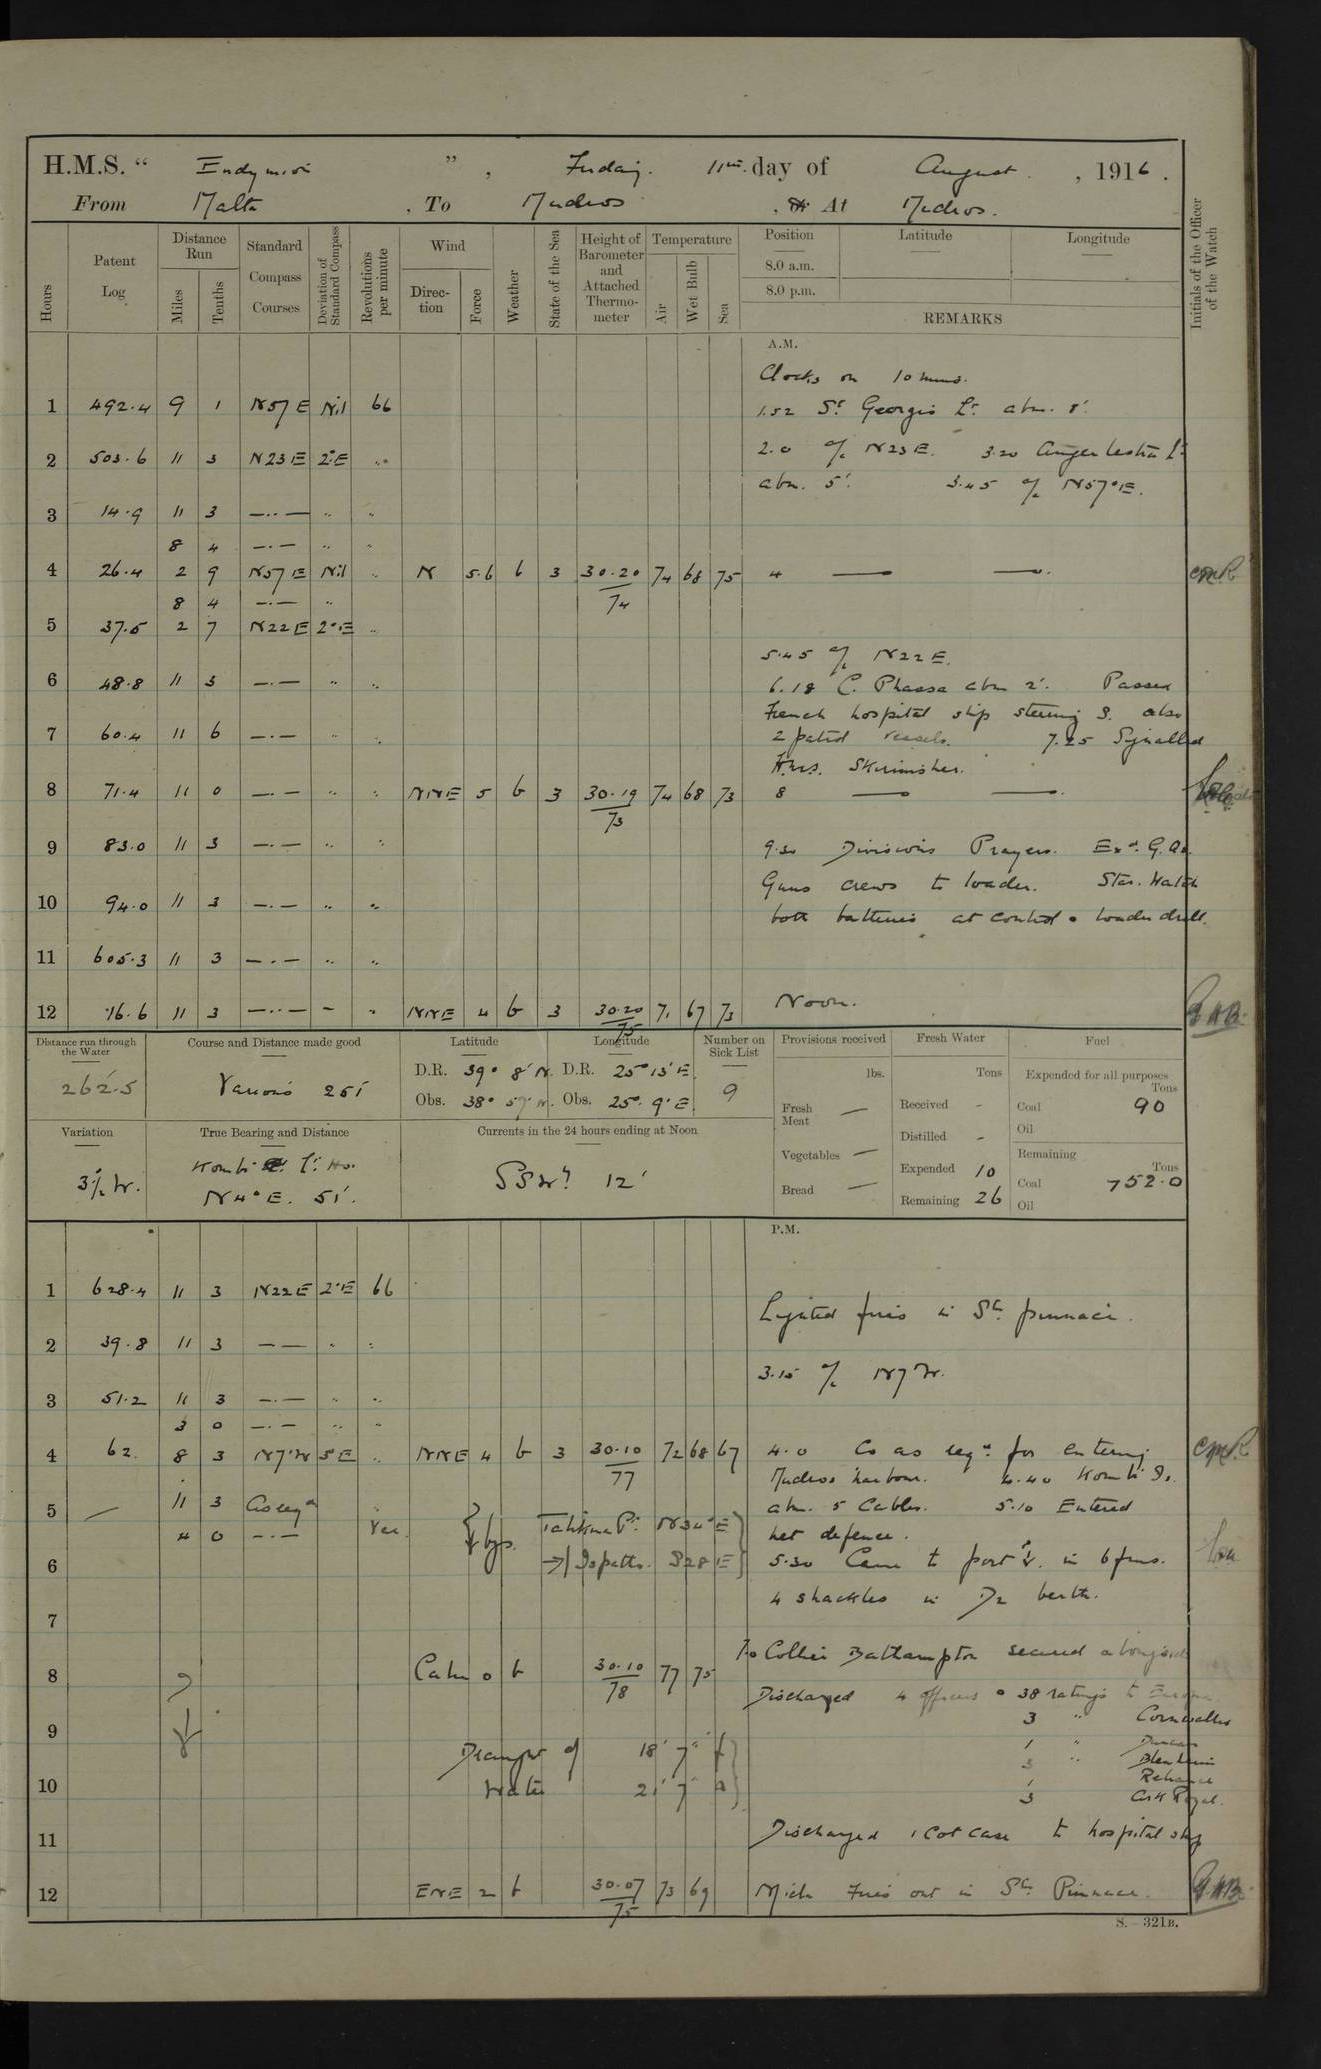 H.M.S. " Endymion ", Friday. 11th day of August, 1916.
From Malta, To Mudros, or At Mudros.
Hours
Patent Log
Distance Run
Miles
Tenths
Standard Compass Courses
Deviation of Standard Compass
Revolutions per minute
Wind
Direction
Force
Weather
State of the Sea
Height of Barometer and Attached Thermometer
Temperature
Air
Wet Bulb
Sea
Position
Latitude
Longitude
8.0 a.m.
8.0 p.m.
REMARKS
Initials of the Officer of the Watch
A.M.
Clocks on 10 mins.
1 492.4 9 1 N57E Nil 66 1.52 St Georgio Lt. abm. 8'.
2 503.6 11 3 N23E 2°E " 2.0 a/c N23E. 3.20 Lt
abm. 5'. 3.45 a/c N57°E.
3 14.9 11 3 —..— " "
8 4 —.— " "
4 26.4 2 9 N57E Nil " N 5.6 b 3 30.20/74 74 68 75 4 — —. CMR
8 4 —.— "
5 37.5 2 7 N22E 2°E "
5.45 a/c N22E.
6 48.8 11 3 —.— " " 6.18 C. Phassa abm 2'. Passed
French hospital ship steering S. also
7 60.4 11 6 —.— " " 2 patrol vessels. 7.25 Signalled
H.M.S. Skirmisher.
8 71.4 11 0 —.— " " NNE 5 b 3 30.19/73 74 68 73 8 — —.
9 83.0 11 3 —.— " " 9.30 Divisions Prayers. Exd. G. Qrs.
Guns crews to loader. Star. Watch
10 94.0 11 3 —.— " " both batteries at control & loader drill.
11 605.3 11 3 —.— " "
12 16.6 11 3 —..— - " NNE 4 b 3 30.20/75 71 67 73 Noon.
Distance run through the Water
262.5
Course and Distance made good
Various 251
Latitude
D.R. 39° 8' N.
Obs. 38° 57' N.
Longitude
D.R. 25° 13' E.
Obs. 25° 9' E.
Number on Sick List
9
Provisions received
lbs.
Fresh Meat —
Vegetables —
Bread —
Fresh Water
Tons
Received -
Distilled -
Expended 10
Remaining 26
Fuel
Expended for all purposes
Tons
Coal 90
Oil
Remaining
Tons
Coal 752.0
Oil
Variation
3½ W.
True Bearing and Distance
Kombi Lt. Ho.
N4°E. 51'.
Currents in the 24 hours ending at Noon
SSWly 12'
P.M.
1 628.4 11 3 N22E 2°E 66
Lighted fires in St. pinnace.
2 39.8 11 3 —— " "
3.15 a/c N7W.
3 51.2 11 3 —.— " "
3 0 —.— " "
4 62. 8 3 N7°W 5°E " NNE 4 b 3 30.10/77 72 68 67 4.0 Co as reqd for entering CMR
Mudros harbour. 4.40 Kombi Is.
5 — 11 3 As reqd " abm. 5 Cables. 5.10 Entered
4 0 —.— Var. bgs. Pt. N34°E net defence.
6 Ispatho. S28E 5.30 Came to port in 6 fms.
4 shackles in D2 berth.
7
7.0 Collier Bathampton secured alongside
8 Calm 0 b 30.10/78 77 75
Discharged 4 officers & 38 ratings to Europa.
3 " Cornwallis
9
1 " Duncan
Draught of 18' 7" f
3 " Blenheim
1 Reliance
10 Water 21' 7" a
3 Ark Royal.
11 Discharged 1 Cot case to hospital ship
12 ENE 2 b 30.07/75 73 69 Midt Fires out in St. Pinnace.
S.—321B.